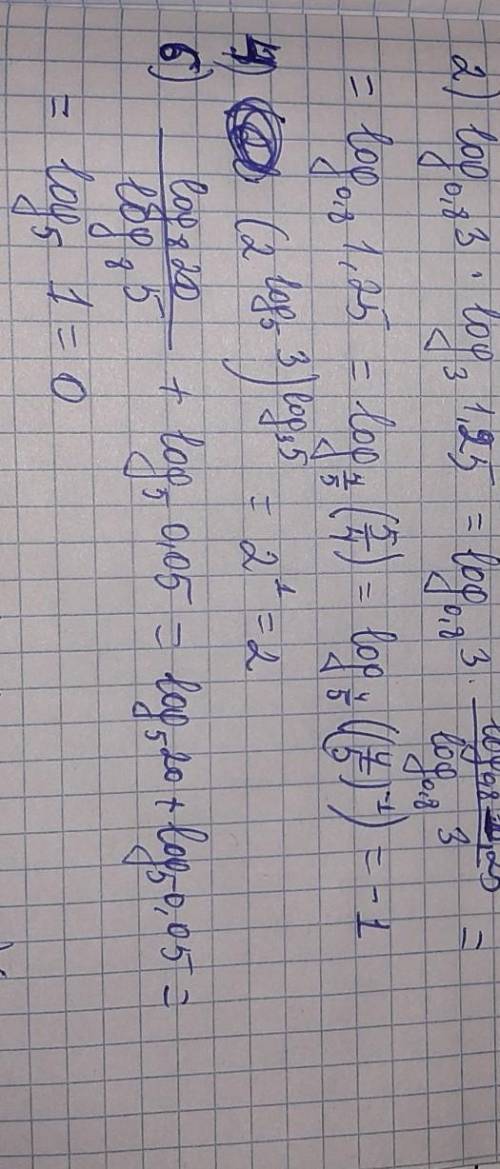 2) log₀,₈ 3 · log₃ 1,25 = log₀,₈ 3 · log₀,₈ 1,25 / log₀,₈ 3 =
= log₀,₈ 1,25 = log_(4/5) (5/4) = log_(4/5) ((4/5)⁻¹) = -1
4) (2^(log₅ 3))^(log₃ 5) = 2¹ = 2
6) log₈ 20 / log₈ 5 + log₅ 0,05 = log₅ 20 + log₅ 0,05 =
= log₅ 1 = 0